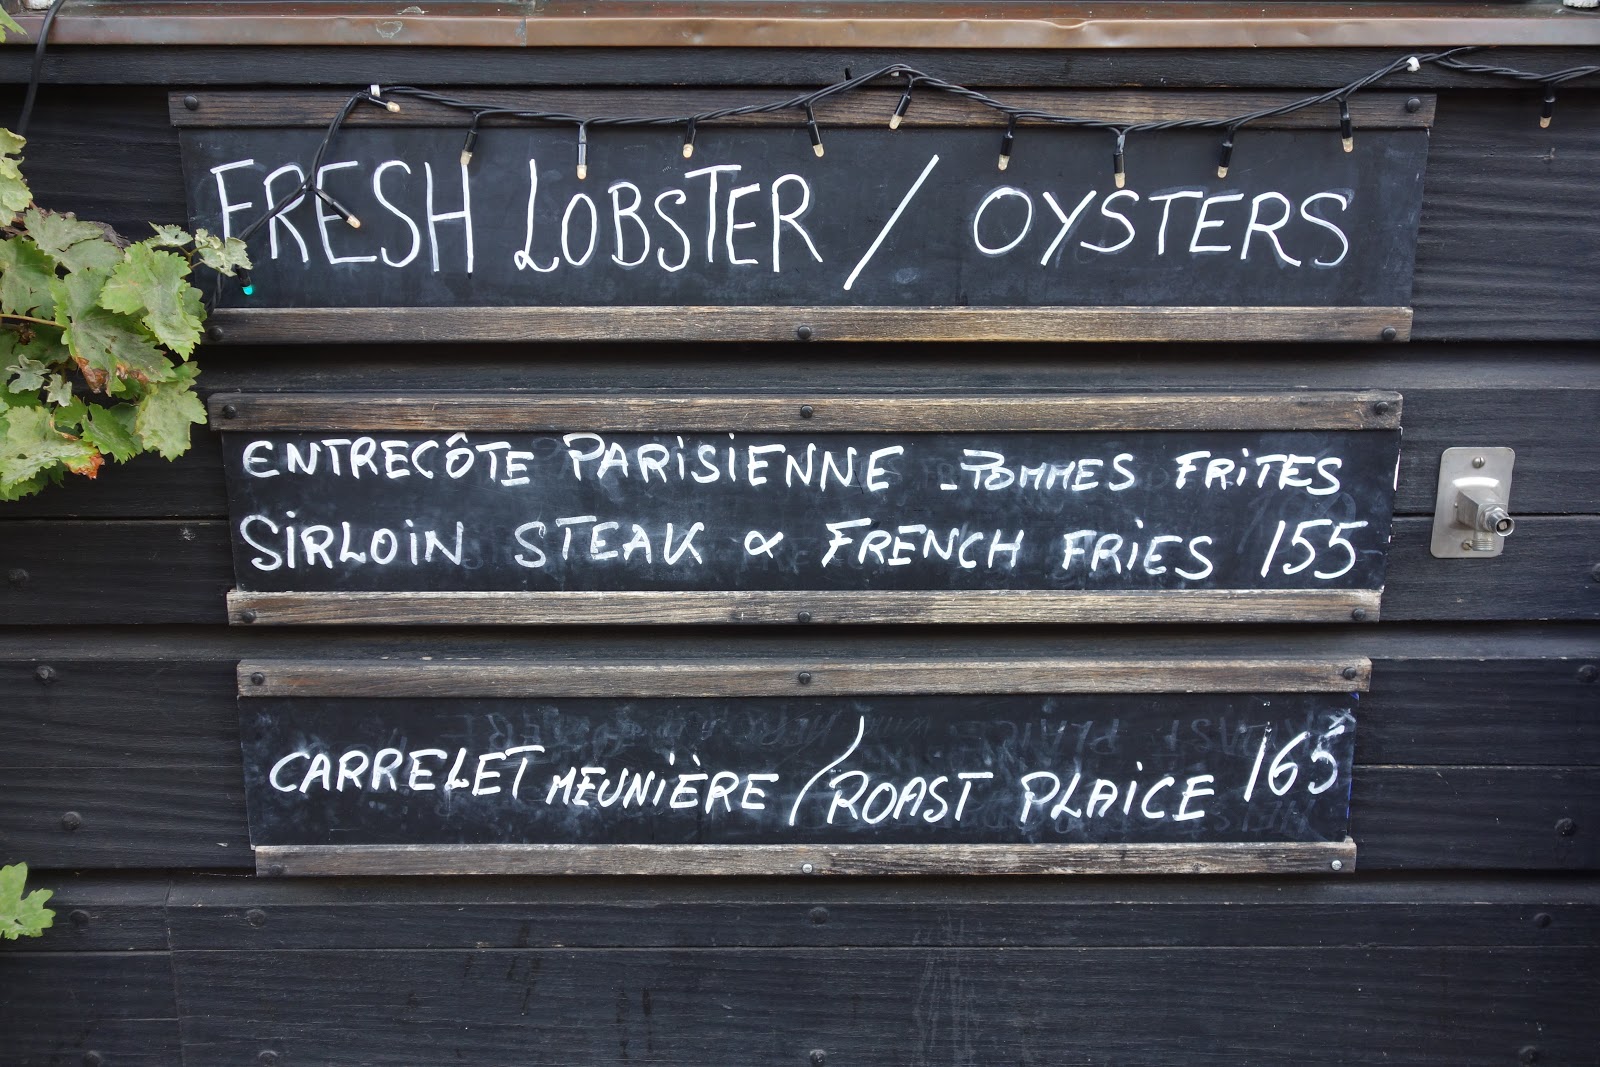 FRESH LOBSTER / OYSTERS
ENTRECÔTE PARISIENNE - POMMES FRITES
SIRLOIN STEAK & FRENCH FRIES 155
CARRELET MEUNIÈRE / ROAST PLAICE 165